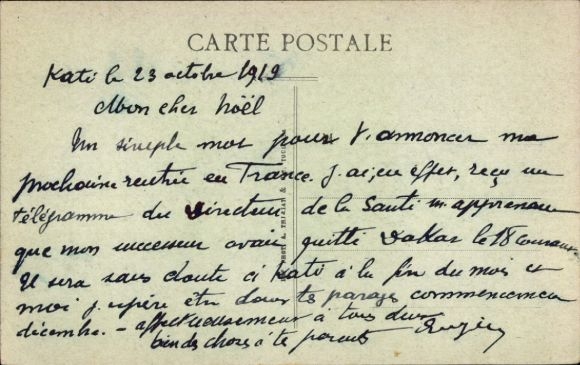 CARTE POSTALE
Kati le 23 octobre 1919
Mon cher Noël
Un simple mot pour t'annoncer ma
prochaine rentrée en France. J'ai, en effet, reçu un
télégramme du Directeur de la Santé m'apprenant
que mon successeur avait quitté Dakar le 18 courant
Il sera sans doute à Kati à la fin du mois et
moi j'espère être dans tes parages commencement
décembre. - affectueusement à tous deux
bien des choses à tes parents